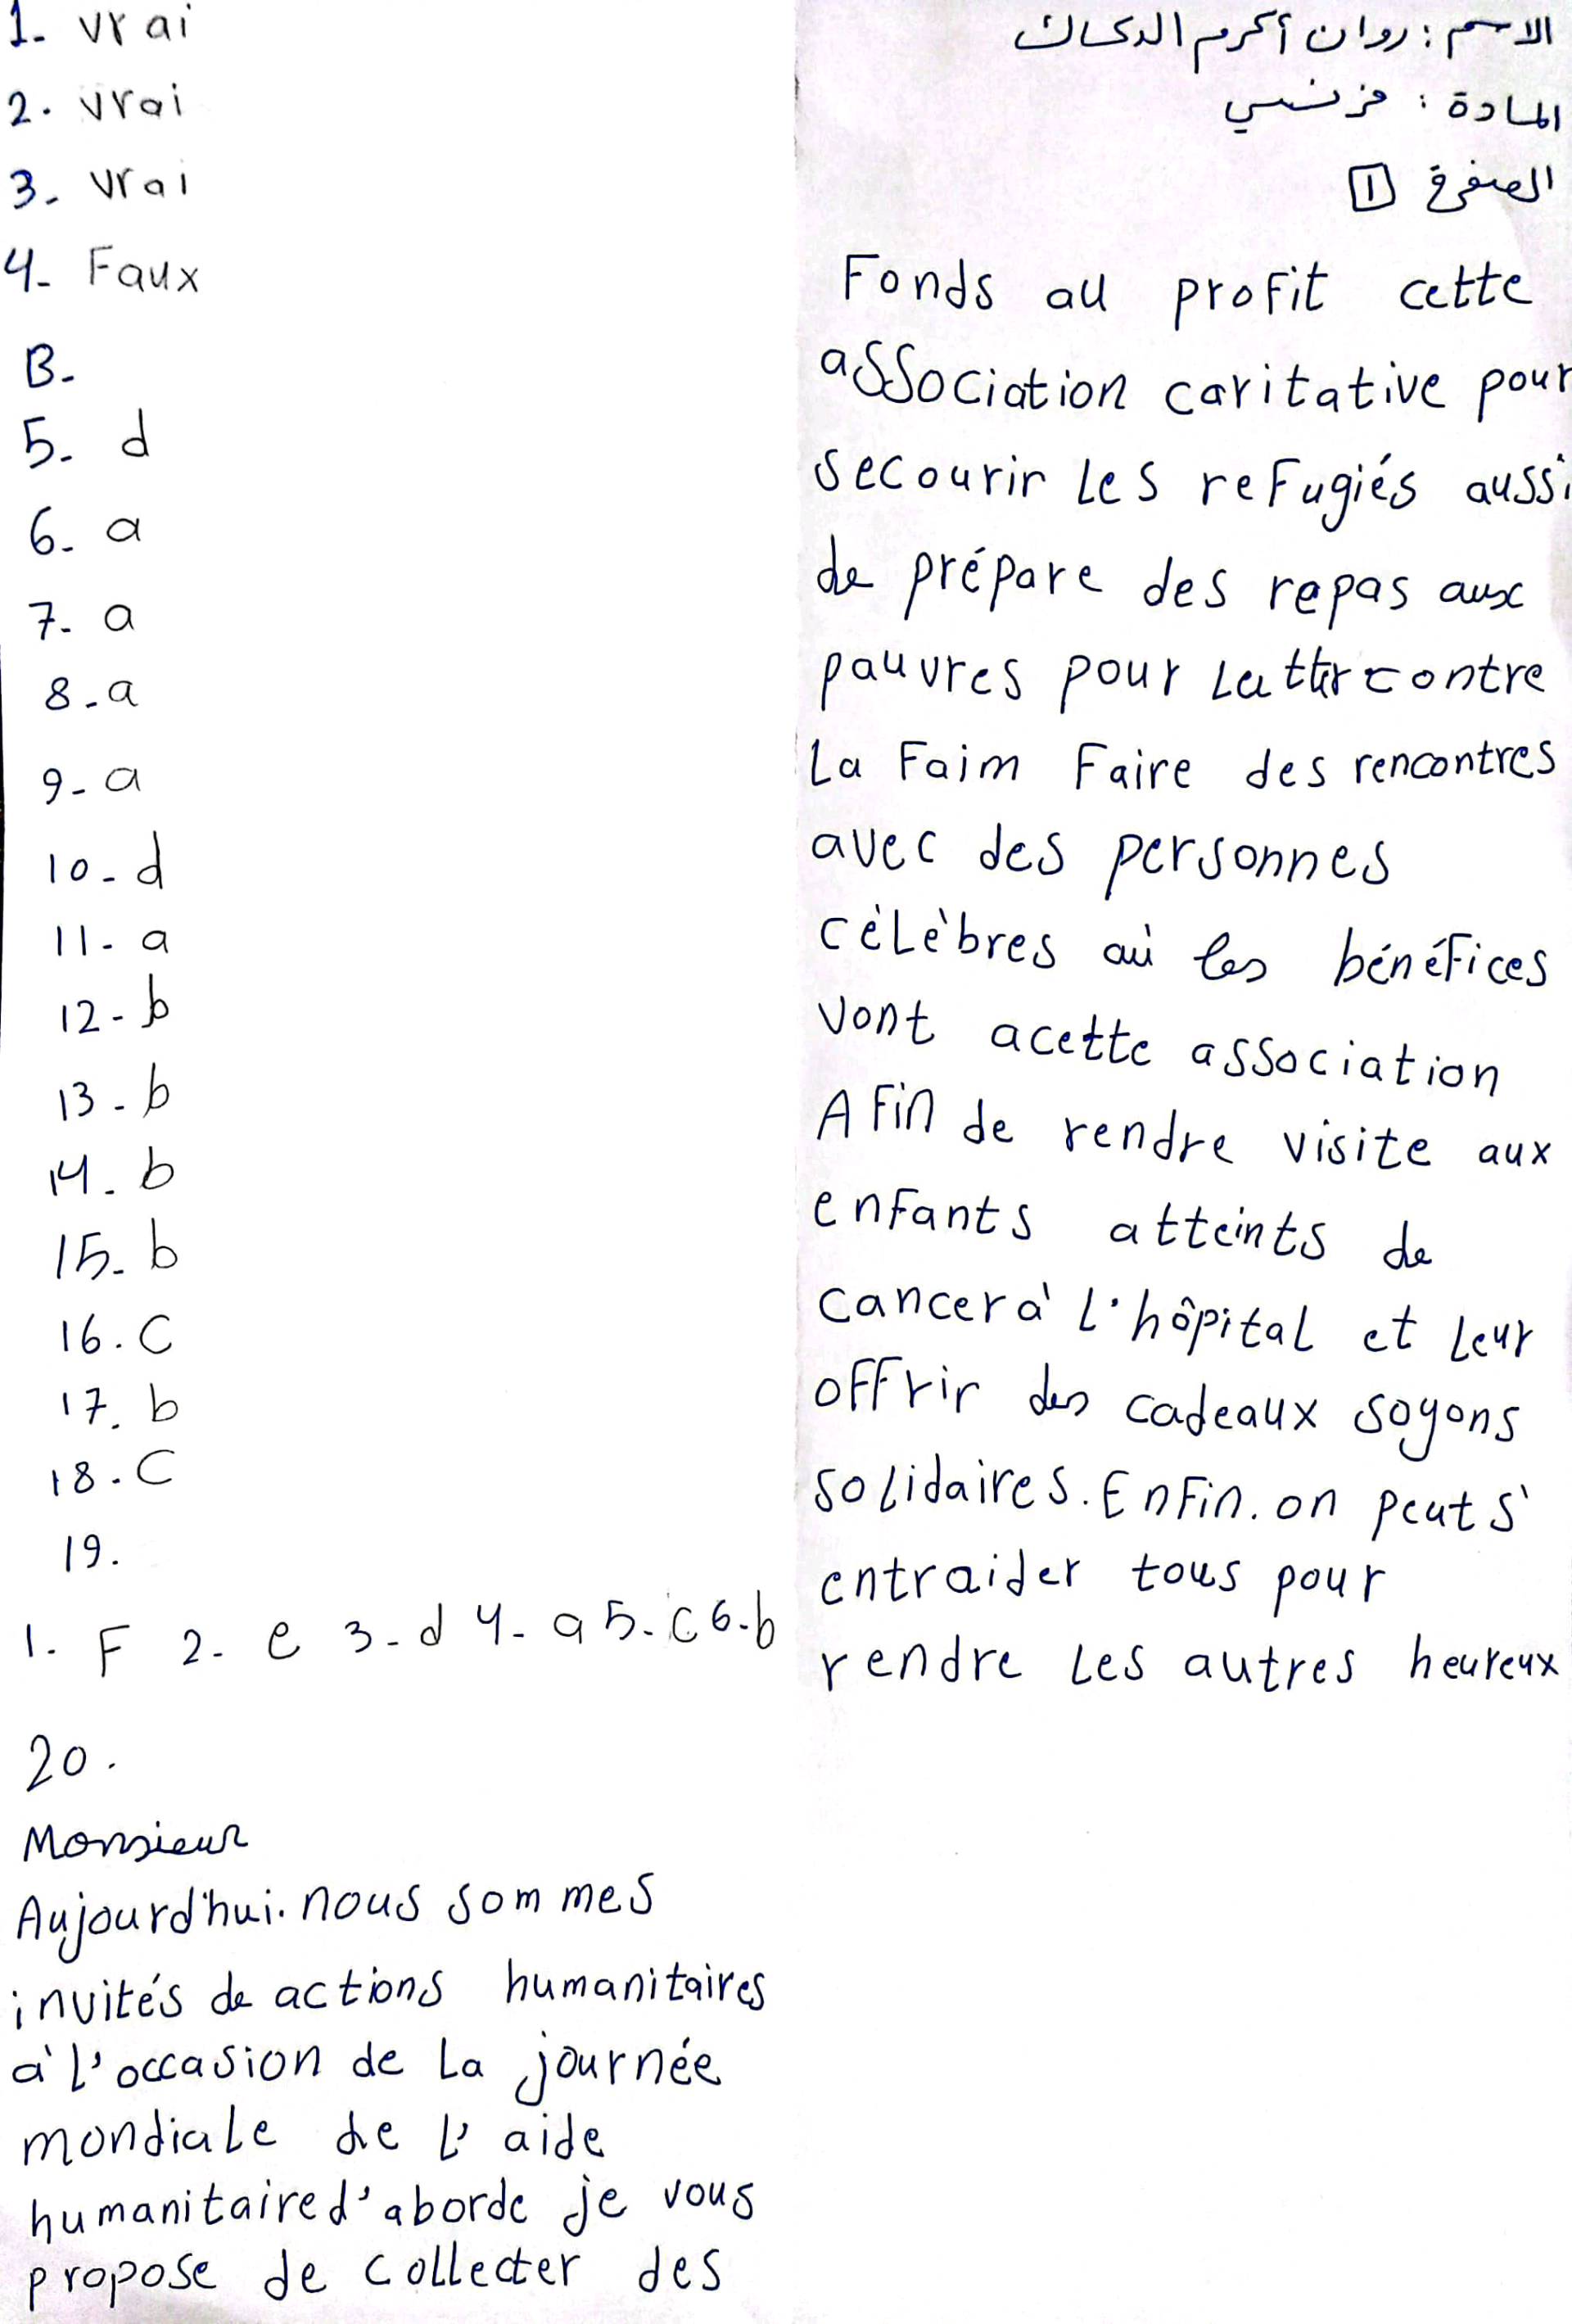 الاسم : روان أكرم الدكاك
المادة : فرنسي
الصفرة 1
1- vrai
2. vrai
3- vrai
4- Faux
B-
5- d
6- a
7- a
8-a
9-a
10-d
11-a
12-b
13-b
14-b
15-b
16.C
17.b
18.C
19.
1. F 2- e 3-d 4-a 5-c 6-b
20.
Monsieur
Aujourd'hui. nous sommes
invités de actions humanitaires
à l'occasion de La journée
mondiale de L' aide
humanitaire d'aborde je vous
propose de collecter des
Fonds au profit cette
association caritative pour
secourir Les refugiés aussi
de prépare des repas aux
pauvres pour contre
La Faim Faire des rencontres
avec des personnes
célèbres où les bénéfices
vont acette association
AFin de rendre visite aux
enfants atteints de
cancer à L'hôpital et Leur
offrir des cadeaux soyons
solidaires. EnFin. on peut s'
entraider tous pour
rendre Les autres heureux